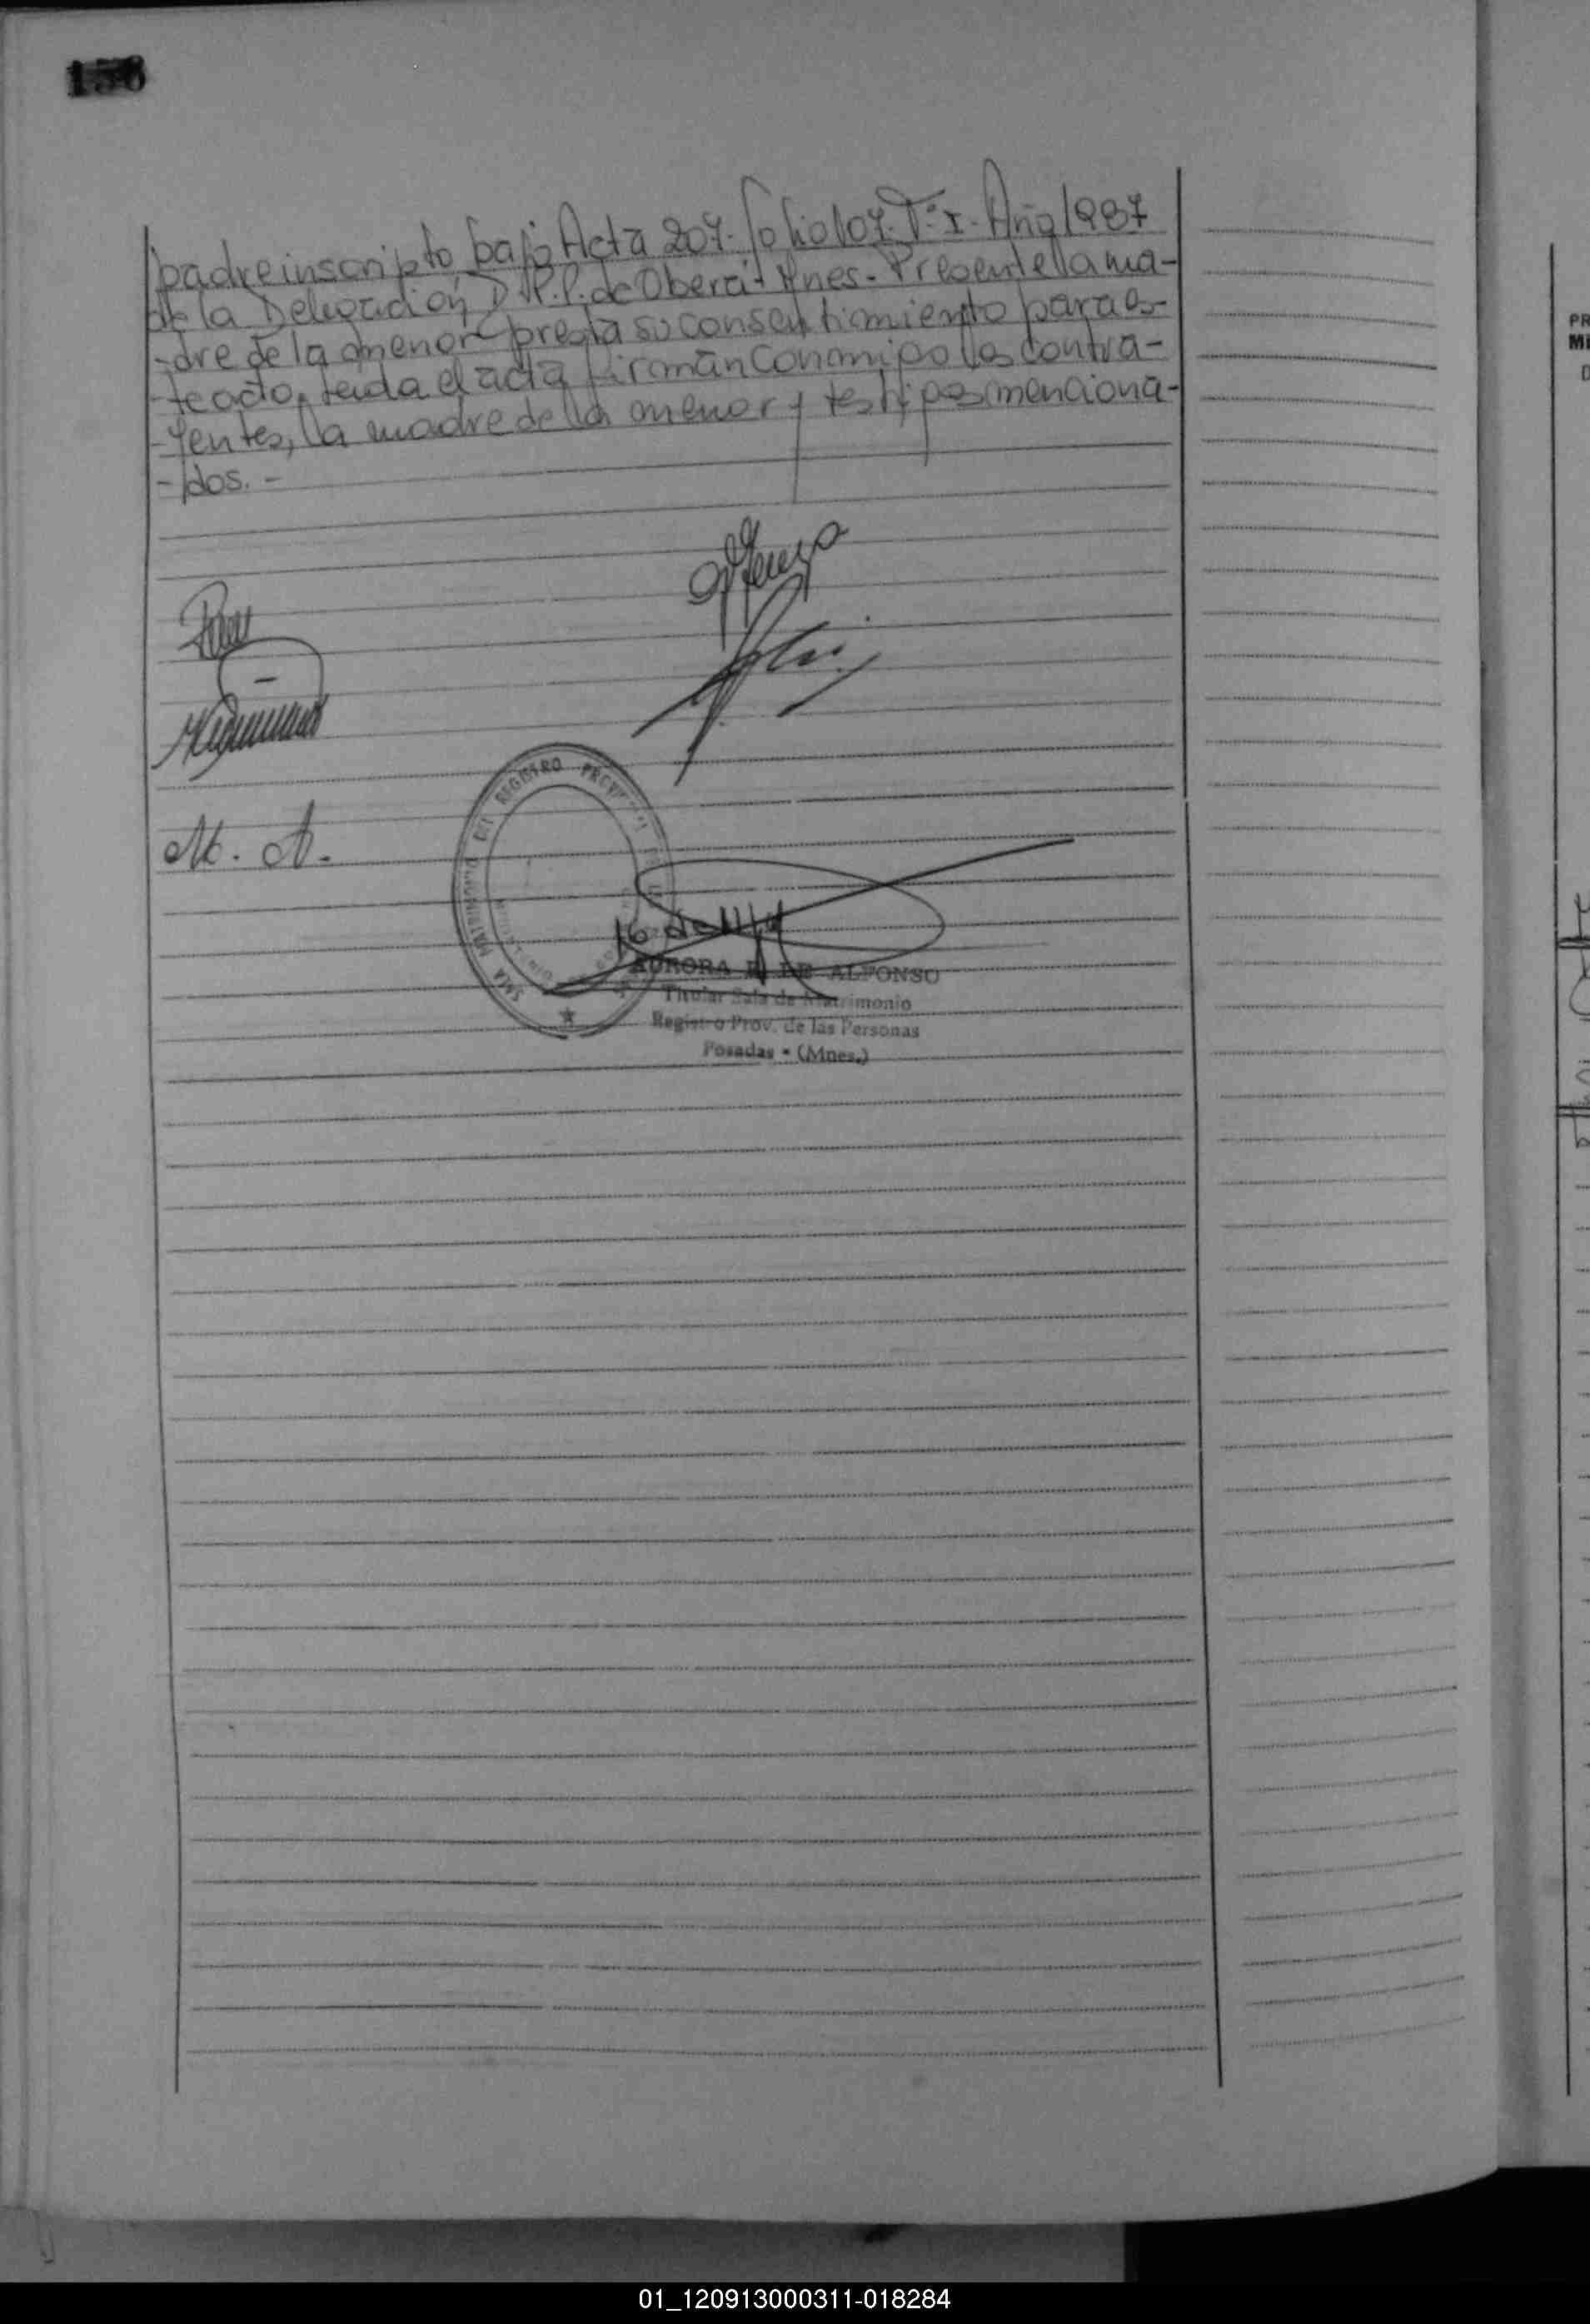 156
padre inscripto bajo Acta 207. folio 107. Tº I. Año 1987
de la Delegación D.R.P. de Oberá - Mnes. - Presente la ma-
-dre de la menor presta su consentimiento para es-
-te acto. Leida el acta firman conmigo los contra-
-yentes, la madre de la menor y testigos menciona-
-dos. -
M. A.
REGISTRO
16 de
AURORA DE ALFONSO
Titular Sala de Matrimonio
Registro Prov. de las Personas
Posadas - (Mnes.)
01_120913000311-018284